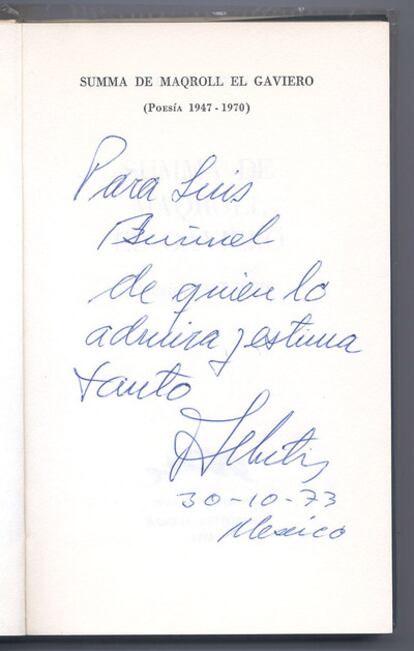 SUMMA DE MAQROLL EL GAVIERO
(POESÍA 1947 - 1970)
Para Luis
Buñuel
de quien lo
admira y estima
tanto
30-10-73
Mexico